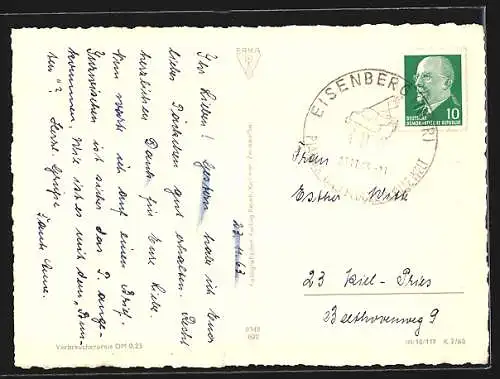 23.11.63
Ihr Lieben! Gestern habe ich Euer
liebes Päckchen gut erhalten. Recht
herzlichen Dank für Eure Liebe.
Nun warte ich auf einen Brief.
Inzwischen ist sicher das P. ange-
kommen. Wie ist es mit dem
ten"? Herzl. Grüße
Tante Anne.
ERMA
9348
Verbraucherpreis DM 0,25
EISENBERG (THÜR)
DEUTSCHE
DEMOKRATISCHE REPUBLIK
10
Frau
Esther Witt
23 Kiel-Pries
Beethovenweg 9
K 2/60